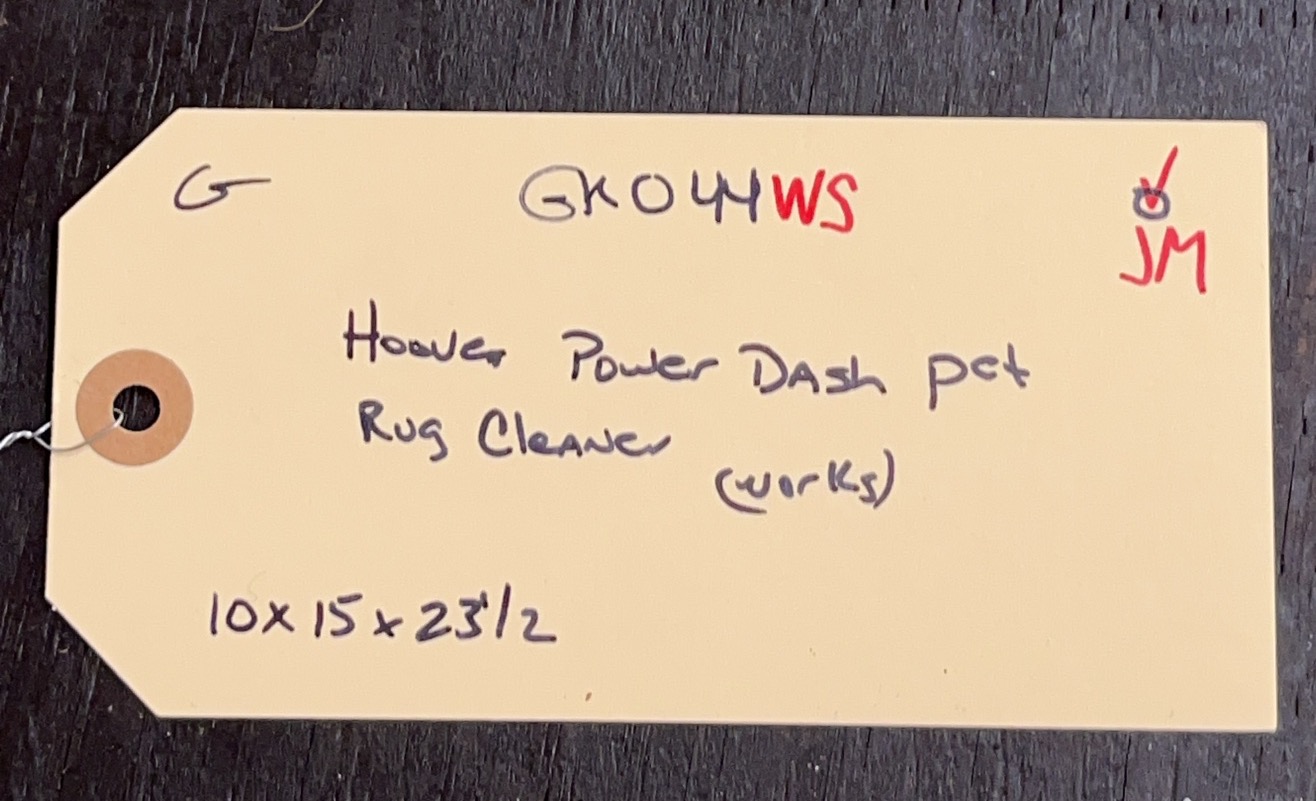 G GK044WS
JM
Hoover Power Dash pet
Rug Cleaner
(works)
10x15x23 1/2